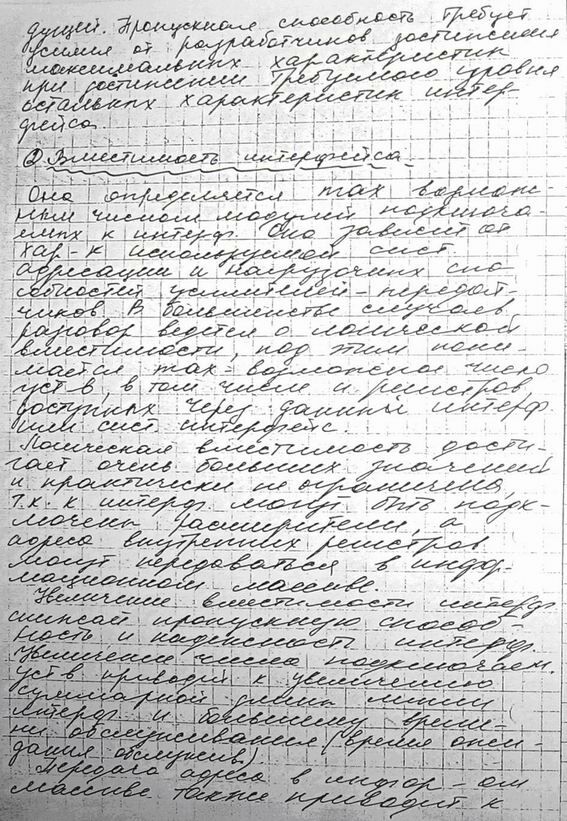 дущей. Пропускная способность требует
усилия от разработчиков достижения
максимальных характеристик
при достижении требуемого уровня
остальных характеристик интер-
фейса.
② Вместимость интерфейса.
Она определяется max возмож-
ным числом модулей подключа-
емых к интерф. Она зависит от
хар-к используемой сист.
адресации и нагрузочных спо-
собностей усилителей-передат-
чиков. В большинстве случаев
разговор ведется о логической
вместимости, под этим пони-
мается max-возможное число
уст-в, в том числе и регистров
доступных через данный интерф
или сист. интерфейс.
Логическая вместимость дости-
гает очень больших значений
и практически не ограничена,
т.к. к интерф. могут быть подк-
лючены расширители, а
адреса внутренних регистров
могут передоваться в инфор-
мационном массиве.
Увеличение вместимости интерф.
снижает пропускную способ
ность и надежность интерф.
Увеличение числа подключаем.
уст-в приводит к увеличению
суммарной длины линии
интерф. и большему време-
ни обслуживания (время ожи-
дания обслужив)
Передача адреса в инфор-ом
массиве также приводит к